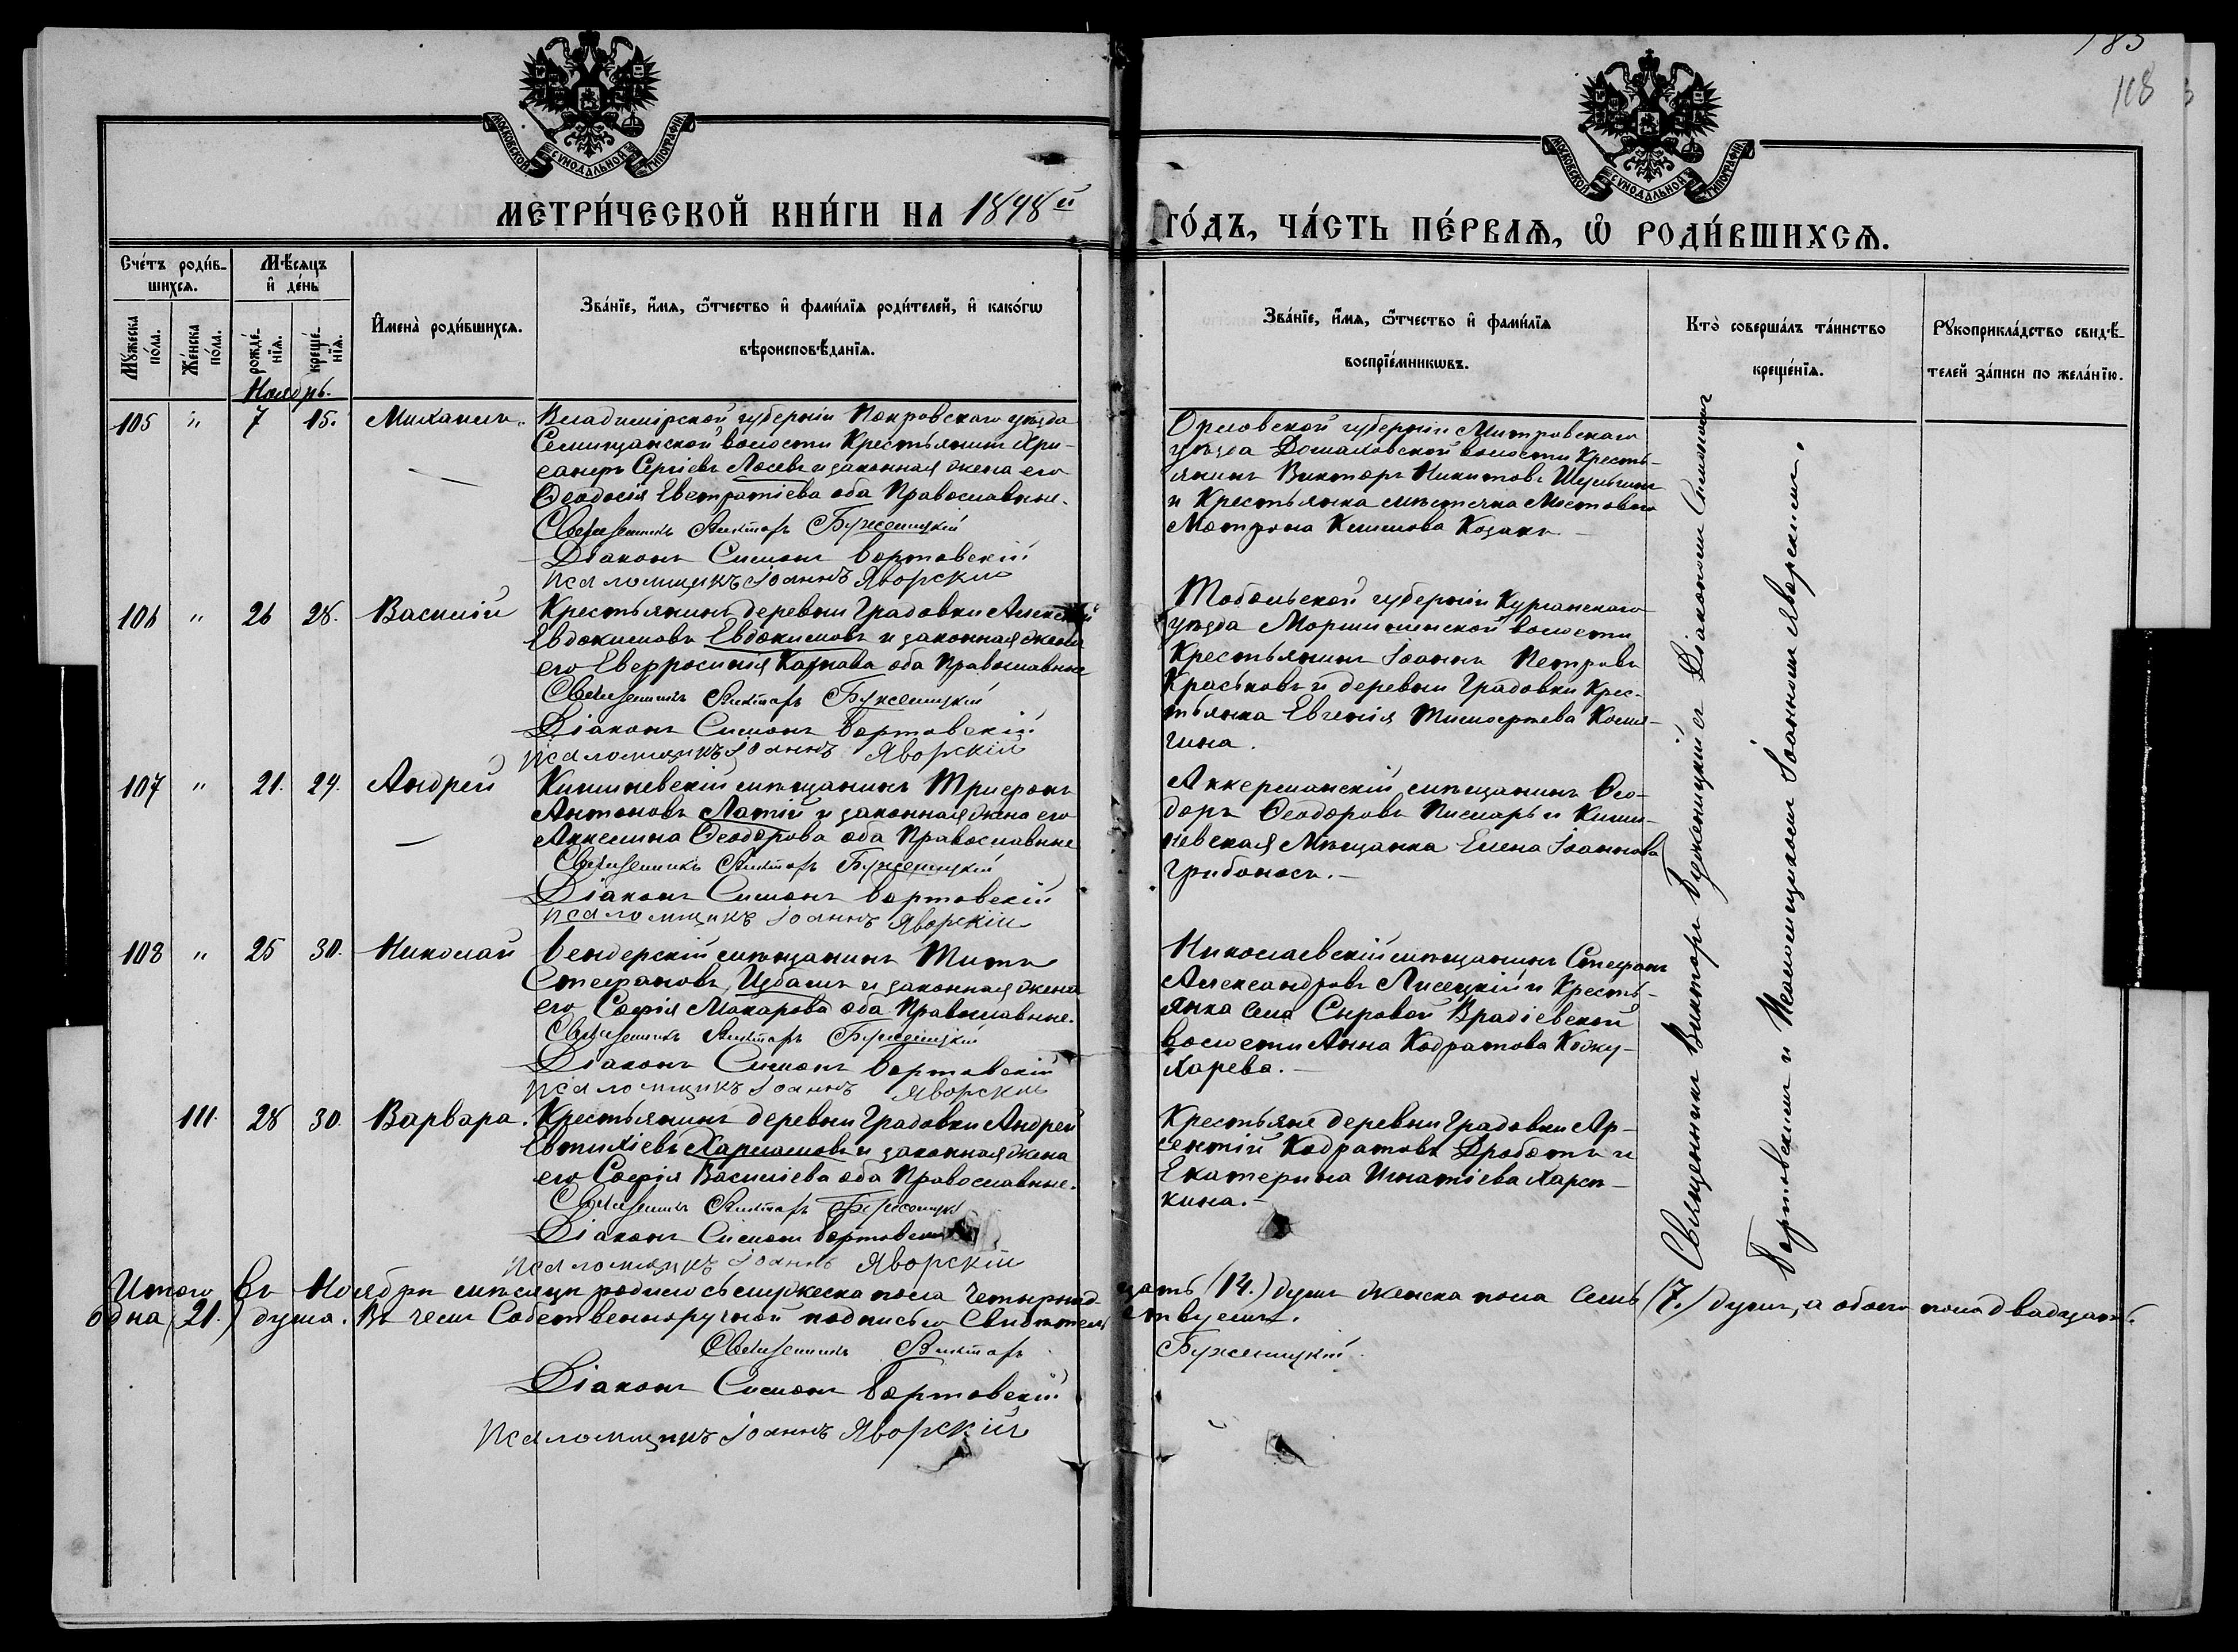 185
118
МОСКОВСКОЙ СѴНОДАЛЬНОЙ ТИПОГРАФІИ
МОСКОВСКОЙ СѴНОДАЛЬНОЙ ТИПОГРАФІИ
МЕТРИ́ЧЕСКОЙ КНИ́ГИ НА 1898й
ГО́ДЪ, ЧА́СТЬ ПЕ́РВАѦ, Ѽ РОДИ́ВШИХСѦ.
Сче́тъ роди́в-
шихсѧ.
Мѣ́сѧцъ
и҆ де́нь
Мꙋ́жеска по́ла.
Же́нска по́ла.
рожде́-нїѧ.
креще́-нїѧ.
И҆мена̀ роди́вшихсѧ.
Зва́нїе, и҆́мѧ, ѻ҆́тчество и҆ фами́лїѧ роди́телей, и҆ како́гѡ
вѣроисповѣ́данїѧ.
Зва́нїе, и҆́мѧ, ѻ҆́тчество и҆ фами́лїѧ
воспрїе́мникѡвъ.
Кто̀ соверша́лъ та́инство
креще́нїѧ.
Рꙋкоприкла́дство свидѣ́-
телей за́писи по жела́нїю.
Ноябрь.
105 " 7 15. Михаилъ.
Владимірской губерніи Покровскаго уѣзда
волости Крестьянинъ Хри-
санфъ Сергіевъ Лосевъ и законная жена его
Ѳеодосія Евстратіева оба Православные.
Священникъ Викторъ Буженицкій
Діаконъ Симонъ Бортовскій
Псаломщикъ Іоаннъ Яворскій
Орловской губерніи Митровскаго
уѣзда Домаховской волости Кресть-
янинъ Викторъ Никитовъ
и Крестьянка мѣстечка
Матрона Климова Козакъ
106 " 26 28. Василій
Крестьянинъ деревни Градовки Алексѣй
Евдокимовъ Евдокимовъ и законная жена
его Евфросинія оба Православные
Священникъ Викторъ Буженицкій
Діаконъ Симонъ Бортовскій
Псаломщикъ Іоаннъ Яворскій
Тобольской губерніи Курганскаго
уѣзда Моршихинской волости
Крестьянинъ Іоаннъ Петровъ
Краськовъ и деревни Градовки Крес-
тьянка Евгенія Тимофеева
107 " 21. 29. Андрей
Кишиневскій мѣщанинъ Трифонъ
Антоновъ Латій и законная жена его
Акилина Ѳеодорова оба Православные
Священникъ Викторъ Буженицкій
Діаконъ Симонъ Бортовскій
Псаломщикъ Іоаннъ Яворскій
Аккерманскій мѣщанинъ Ѳео-
доръ Ѳеодоровъ Писарь и Киши-
невская Мѣщанка Елена Іоаннова
Грибоносъ.
108 " 25 30. Николай
Бендерскій мѣщанинъ Титъ
Стефановъ Цубалъ и законная жена
его Софія Макарова оба Православные.
Священникъ Викторъ Буженицкій
Діаконъ Симонъ Бортовскій
Псаломщикъ Іоаннъ Яворскій
Николаевскій мѣщанинъ Стефанъ
Александровъ Лисецкій и Кресть-
янка села Сыровой Врадіевской
волости Анна Кодратова Кожу-
харева.
111. 28 30. Варвара.
Крестьянинъ деревни Градовки Андрей
Евтихіевъ Харламовъ и законная жена
его Софія Василіева оба Православные.
Священникъ Викторъ Буженицкій
Діаконъ Симонъ Бортовскій
Псаломщикъ Іоаннъ Яворскій
Крестьяне деревни Градовки Ар-
сентій Кодратовъ Дроботъ и
Екатерина Игнатіева
Священникъ Викторъ Буженицкій съ Діакономъ Симономъ
Бортовскимъ и Псаломщикомъ Іоанномъ Яворскимъ.
Итого въ Ноябрѣ мѣсяцѣ родилось мужеска пола Четырнад-цать (14.) душъ женска пола Семь (7.) душъ, а обоего пола двадцать
одна (21.) душа. Въ чемъ Собственноручной подписью Свидѣтельствуемъ.
Священникъ Викторъ Буженицкій.
Діаконъ Симонъ Бортовскій
Псаломщикъ Іоаннъ Яворскій